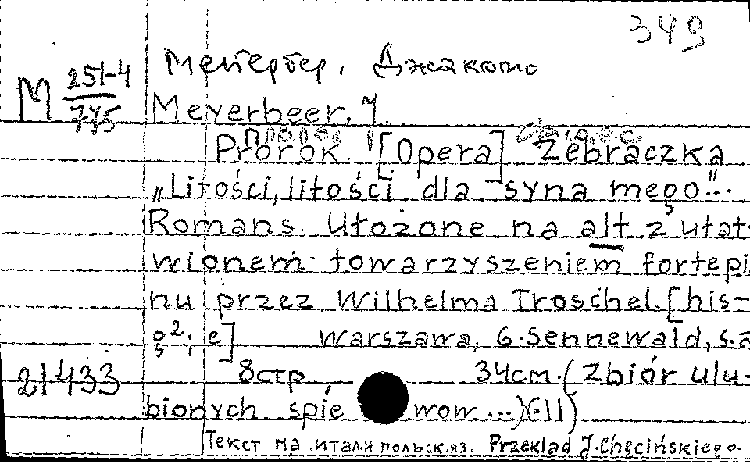 349
М 251-4
745
Мейербер, Джакомо
Meyerbeer, J.
Prorok [Opera] Żebraczka
"Litości, litości dla syna mego"...
Romans. Ułożone na alt z ułat-
wionem towarzyszeniem fortepi
nu przez Wilhelma Troschel. [his-
g²; e] Warszawa, G. Sennewald, s.a
21433 8стр. 34см. (Zbiór ulu-
bionych śpie wow...)
Текст на итал и польск. яз. Przekład J. Chęcińskiego.